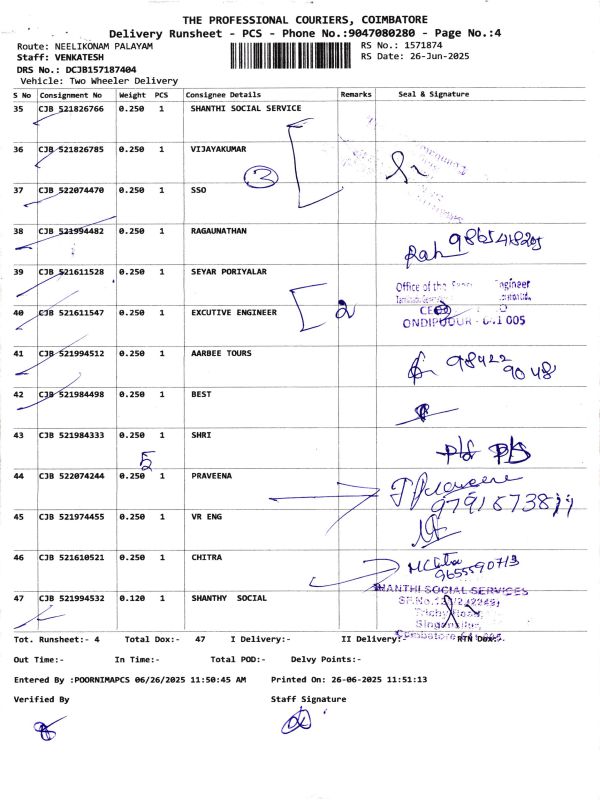 THE PROFESSIONAL COURIERS, COIMBATORE
Delivery Runsheet - PCS - Phone No.:9047080280 - Page No.:4
Route: NEELIKONAM PALAYAM
RS No.: 1571874
Staff: VENKATESH
RS Date: 26-Jun-2025
DRS No.: DCJB157187404
Vehicle: Two Wheeler Delivery
S No Consignment No Weight PCS Consignee Details Remarks Seal & Signature
35 CJB 521826766 0.250 1 SHANTHI SOCIAL SERVICE
36 CJB 521826785 0.250 1 VIJAYAKUMAR
3
37 CJB 522074470 0.250 1 SSO
38 CJB 521994482 0.250 1 RAGAUNATHAN
39 CJB 521611528 0.250 1 SEYAR PORIYALAR
Office of the Engineer
40 CJB 521611547 0.250 1 EXCUTIVE ENGINEER 2
ONDIPUDUR - 641 005
41 CJB 521994512 0.250 1 AARBEE TOURS 98422
9048
42 CJB 521984498 0.250 1 BEST
43 CJB 521984333 0.250 1 SHRI
5
44 CJB 522074244 0.250 1 PRAVEENA
45 CJB 521974455 0.250 1 VR ENG
46 CJB 521610521 0.250 1 CHITRA
9655590713
SHANTHI SOCIAL SERVICES
47 CJB 521994532 0.120 1 SHANTHY SOCIAL
Trichy Road,
Singanallur,
Coimbatore-641 005.
Tot. Runsheet:- 4 Total Dox:- 47 I Delivery:- II Delivery:- RTN Dox:-
Out Time:- In Time:- Total POD:- Delvy Points:-
Entered By :POORNIMAPCS 06/26/2025 11:50:45 AM Printed On: 26-06-2025 11:51:13
Verified By Staff Signature